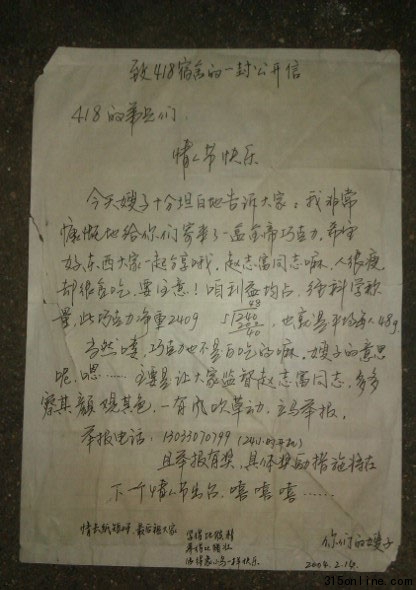 致418宿舍的一封公开信
418的弟兄们:
情人节快乐
今天嫂子十分坦白地告诉大家:我非常
慷慨地给你们寄来了一盒金帝巧克力,希望
好东西大家一起分享哦,赵志富同志嘛,人很瘦
却很贪吃,要注意!咱利益均占,经科学称
量,此巧克力净重240g
48
5 240
20
40
,也就是平均每人48g
当然喽,巧克力也不是白吃的嘛,嫂子的意思
呢,嗯……主要是让大家监督赵志富同志,多多
察其颜观其色,一有风吹草动,立马举报。
举报电话:13033070799(24小时开机)
且举报有奖,具体奖励措施将在
下个情人节出台,嘻嘻嘻……
最后祝大家
你们的嫂子
2004.2.14
315online.com